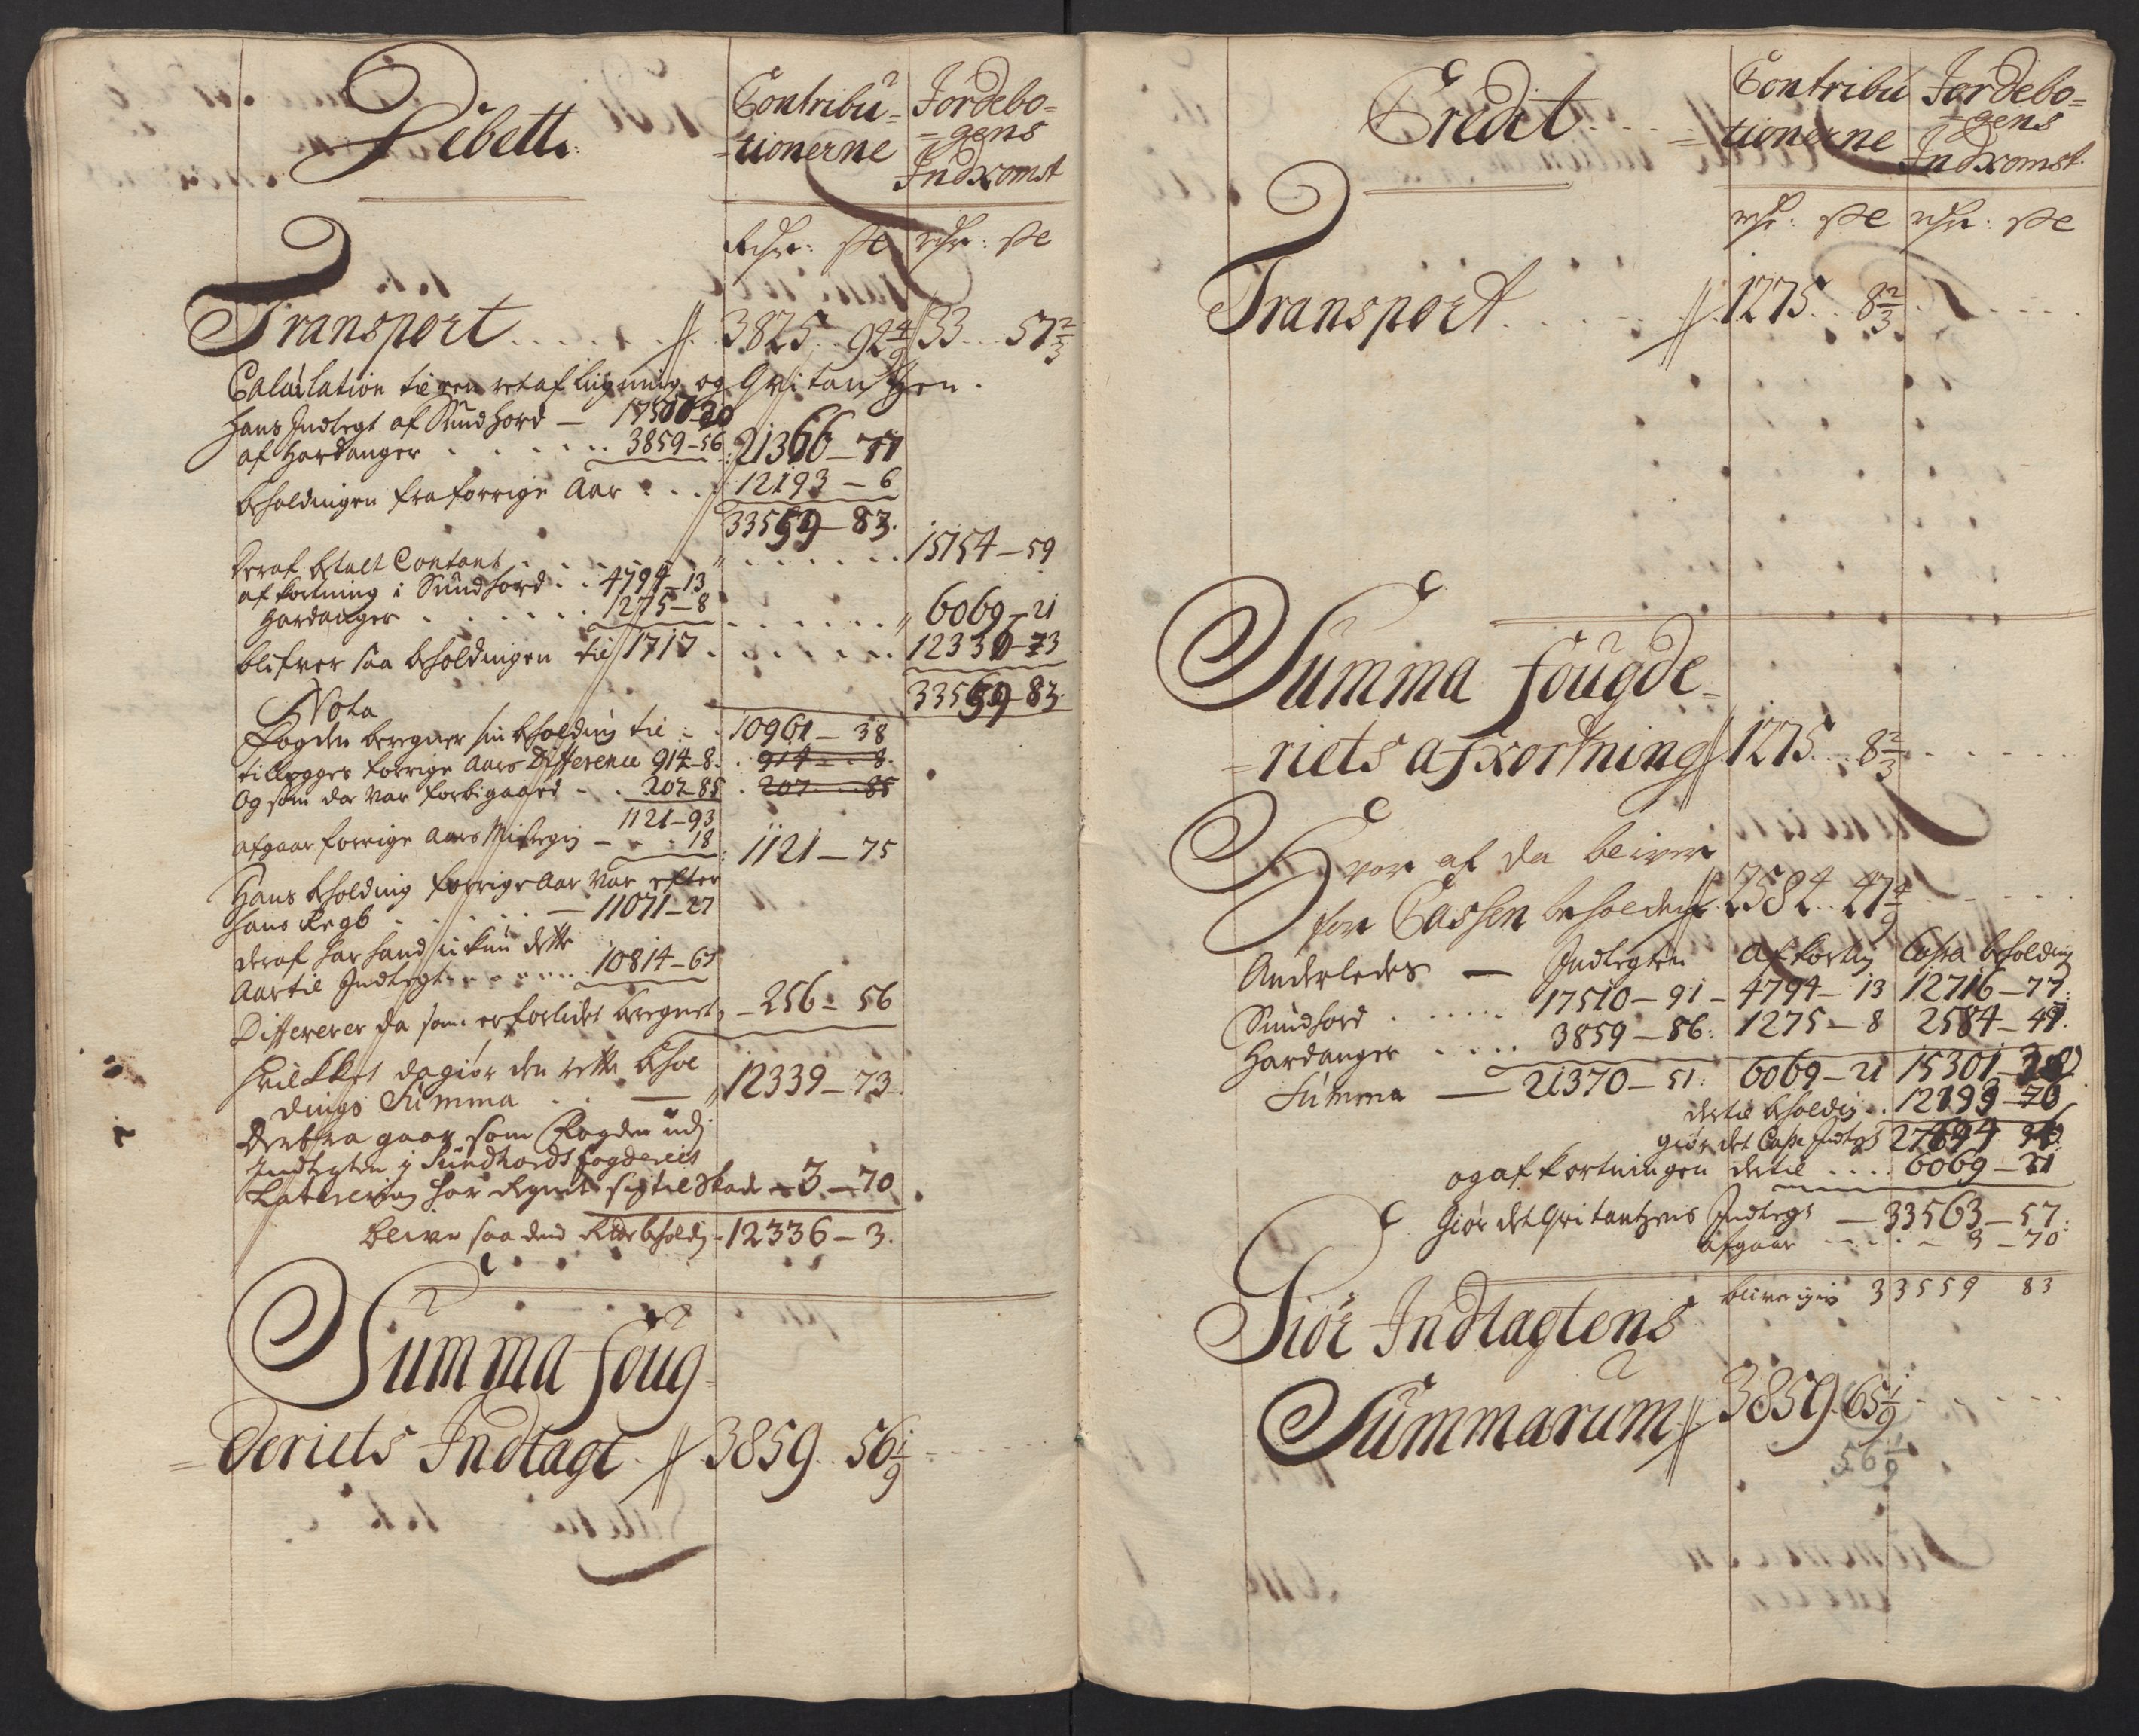 Debett.
Contribu-
-tionerne
Jordebo-
-gens
Indkomst
Rdr: ß rdr: ß
Transport 3825 92 4/9 33 57 2/3
Calculation til en ret aflligning og Qvitantzen.
Hans Indtegt af Sundhord — 17507-20
af Hardanger 3859-56 21366-77
beholdningen fra forrige Aar 12193-6
33559-83.
deraf betalt Contant 15154-59
afkortning i Sundhord 4794-13
Hardanger 1275-8 6069-21
blifver saa beholdningen til 1717 12339-73
33559-83
Nota
Fogden beregner sin beholdning til 10961-38
tillegges forrige Aars Difference 914-8 914-8
og som da var forbigaard 207-85 207-85
1121-93
afgaar forrige Aars 18 1121-75
Hans beholding forrige Aar var efter
hans Regb 11071-27
deraf har hand kun dette
Aar til Indtegt 10814-67
Differerer da som er forlidet beregnet 256-56
hvilkket da giør den rette behol
dings Summa — 12339-73
Derfra gaar som Fogden udj
Indtegten i Sundhords fogderiets
Laterering har Regnet sig til Skade 3-70
blive saa dend Rette beholdj 12336-3.
Summa Foug-
-deriets Indtagt 3859 56 1/9
Credit
Contribu
-tionerne
Jordebo-
-gens
Indkomst
rdr: ß rdr: ß
Transport 1275 8 2/3
Summa Fougde-
-riets afkortning 1275 8 2/3
Hvor af da bliver
for Cassen beholden 2584 47 4/9
Anderledes — Indtegten Afkortng Cassa beholding
Sundhord 17510-91 - 4794-13 12716-77:
Hardanger 3859-56: 1275-8 2584-47.
Summa — 21370-51: 6069-21 15301-
dertil beholdng 12193
giør det Cassa Indtegt
og afkortningen dertil 6069-21
Giør det Qvitantzens Indtegt — 33563-57:
afgaar 3-70
bliver igien 33559 83
Giør Indtagtens
Summarum 3859 65 1/9
56 1/9